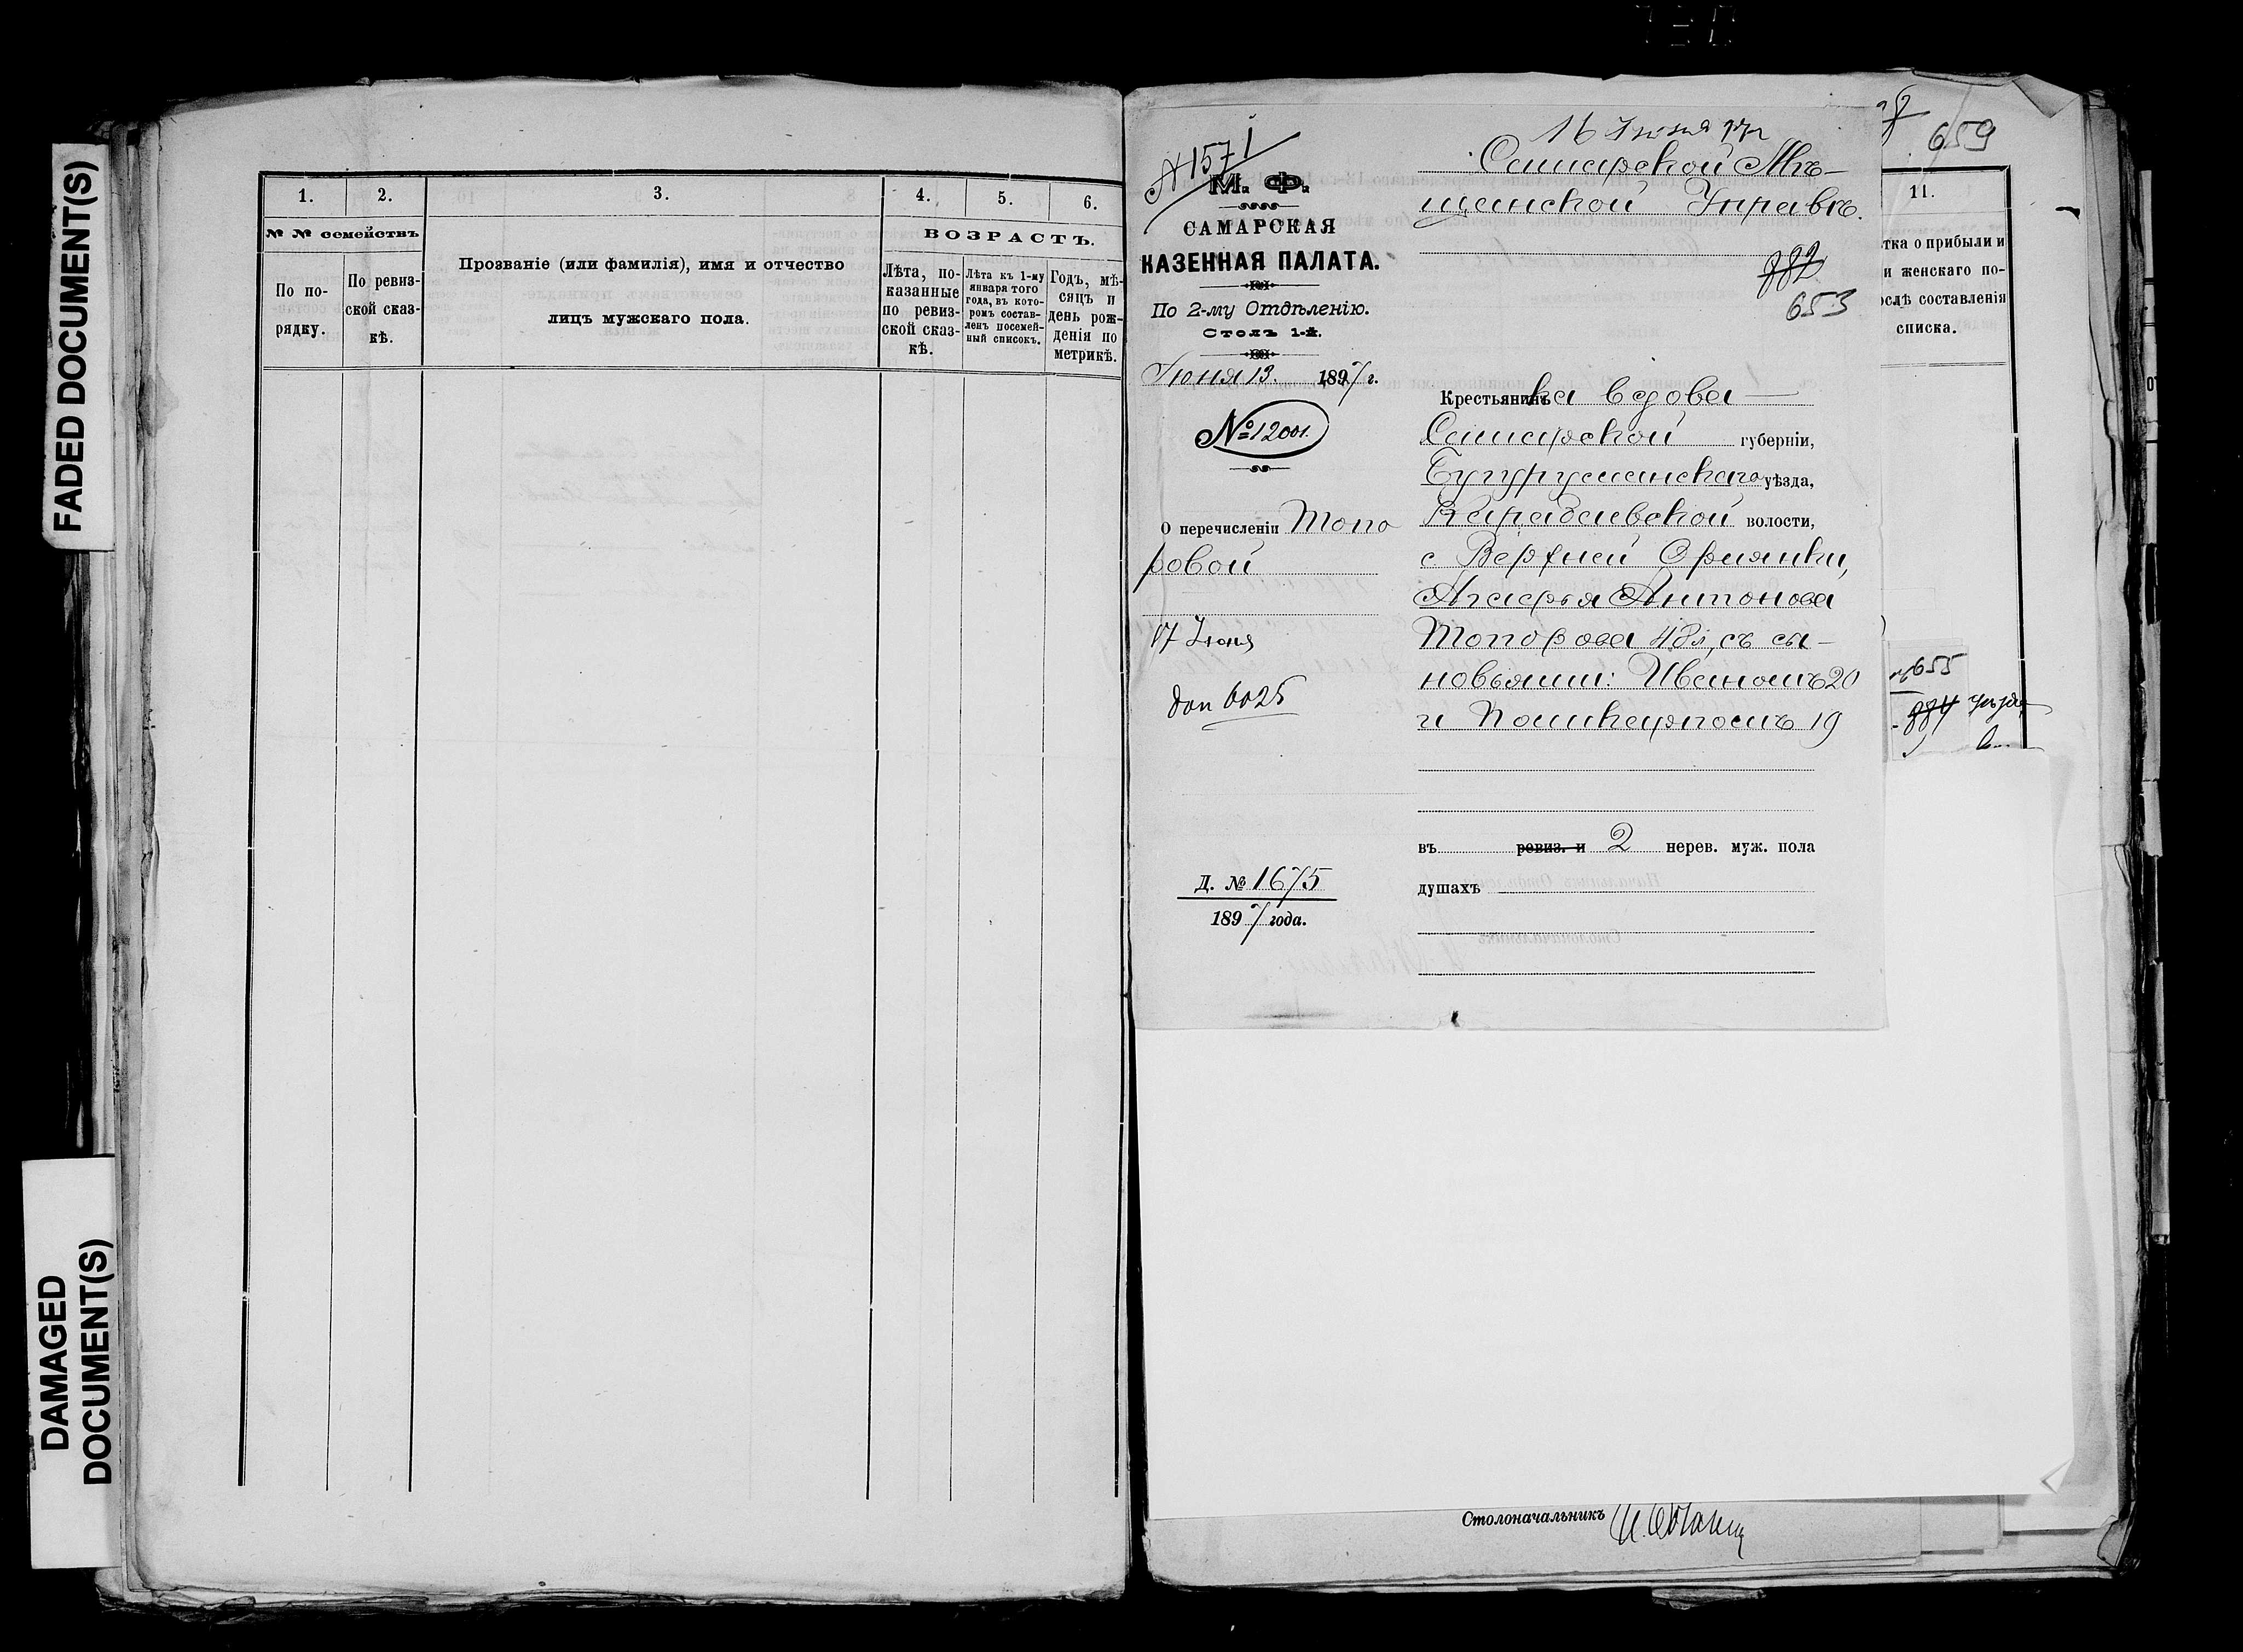 FADED DOCUMENT(S)
DAMAGED
DOCUMENT(S)
1. 2. 3. 4. 5. 6.
№ № семействъ
По по-
рядку.
По ревиз-
ской сказ-
кѣ.
Прозваніе (или фамилія), имя и отчество
лицъ мужскаго пола.
ВОЗРАСТЪ.
Лѣта, по-
казанные
по ревиз-
ской сказ-
кѣ.
Лѣта къ 1-му
января того
года, въ кото-
ромъ состав-
ленъ посемей-
ный списокъ.
Годъ, мѣ-
сяцъ и
день рож-
денія по
метрикѣ.
№1571
М. Ф.
САМАРСКАЯ
КАЗЕННАЯ ПАЛАТА.
По 2-му Отдѣленію.
Столъ 1-й.
Іюня 13. 1897 г.
№12001.
О перечисленіи Топо
ровой
17 Іюня
доп 6025
Д. № 1675
1897 года.
16 Іюня 97 г
Самарской Мѣ-
щанской Управѣ.
882
653
Крестьянка вдова
Самарской губерніи,
Бугурусланскаго уѣзда,
волости,
с Верхней Орлянки,
Агафья Антонова
Топорова 48 л, съ сы-
новьями: Иваномъ 20
и Поликарпомъ 19
въ ревиз. и 2 нерев. муж. пола
душахъ
659
11.
тка о прибыли и
и женскаго по-
ослѣ составленія
списка.
655
884
Столоначальникъ